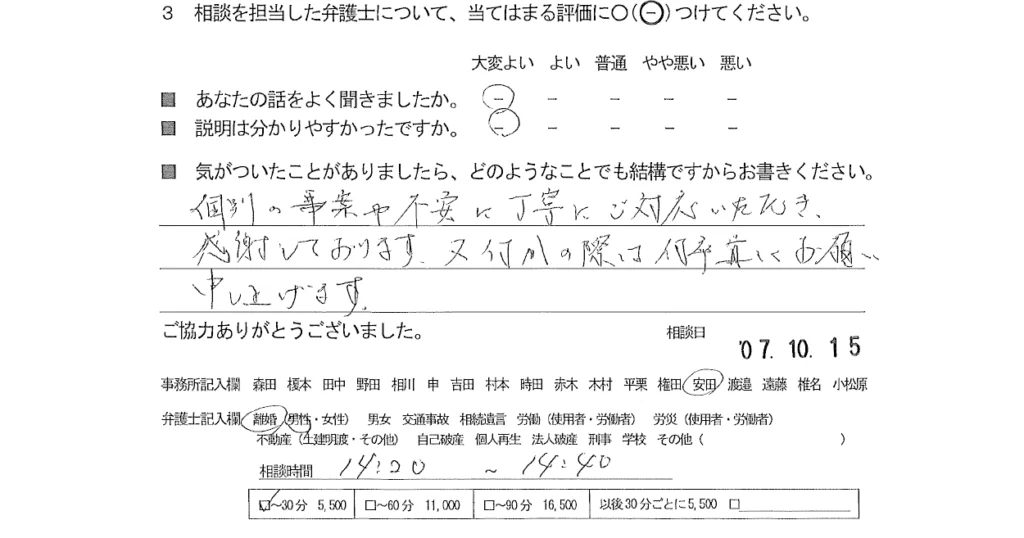 3 相談を担当した弁護士について、当てはまる評価に○(㊀)つけてください。
大変よい よい 普通 やや悪い 悪い
■ あなたの話をよく聞きましたか。 − − − − −
■ 説明は分かりやすかったですか。 − − − − −
■ 気がついたことがありましたら、どのようなことでも結構ですからお書きください。
個別の事案や不安に丁寧にご対応いただき、
感謝しております。又何かの際は何卒宜しくお願い
申し上げます。
ご協力ありがとうございました。 相談日
'07. 10. 15
事務所記入欄 森田 榎本 田中 野田 相川 申 吉田 村本 時田 赤木 木村 平栗 権田 安田 渡邉 遠藤 椎名 小松原
弁護士記入欄 離婚 (男性・女性) 男女 交通事故 相続遺言 労働 (使用者・労働者) 労災 (使用者・労働者)
不動産 (土建明度・その他) 自己破産 個人再生 法人破産 刑事 学校 その他 ( )
相談時間 14:20 ~ 14:40
☑~30分 5,500 □~60分 11,000 □~90分 16,500 以後30分ごとに5,500 □